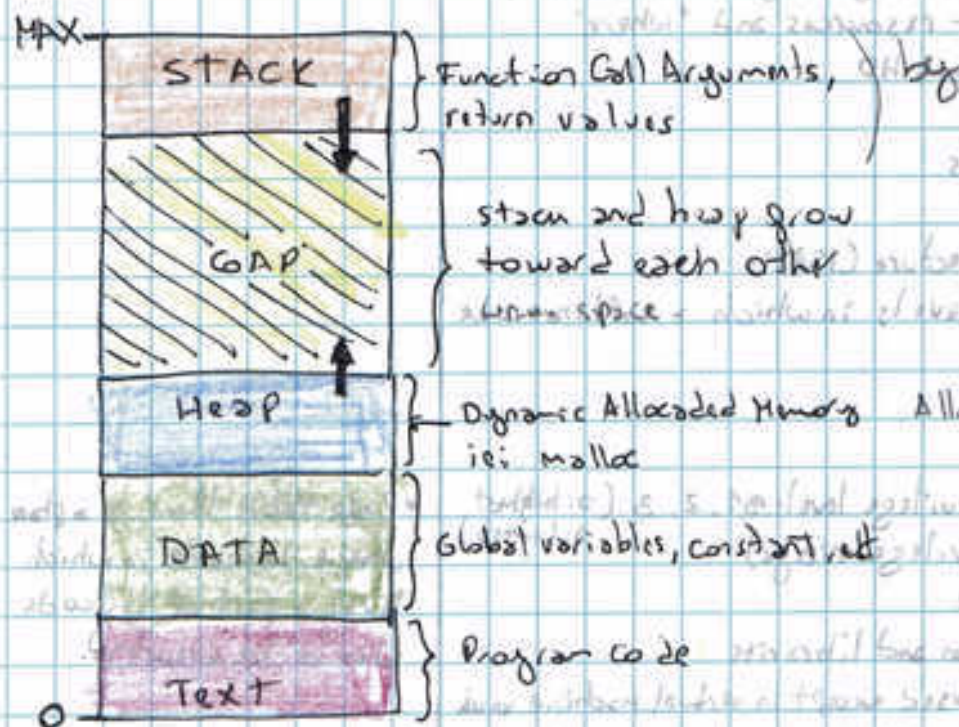 MAX
STACK
Function Call Arguments,
return values
by
GAP
stack and heap grow
toward each other
space
Heap
Dynamic Allocaded Memory All
ie: malloc
DATA
Global variables, constant, etc
Text
Program code
0